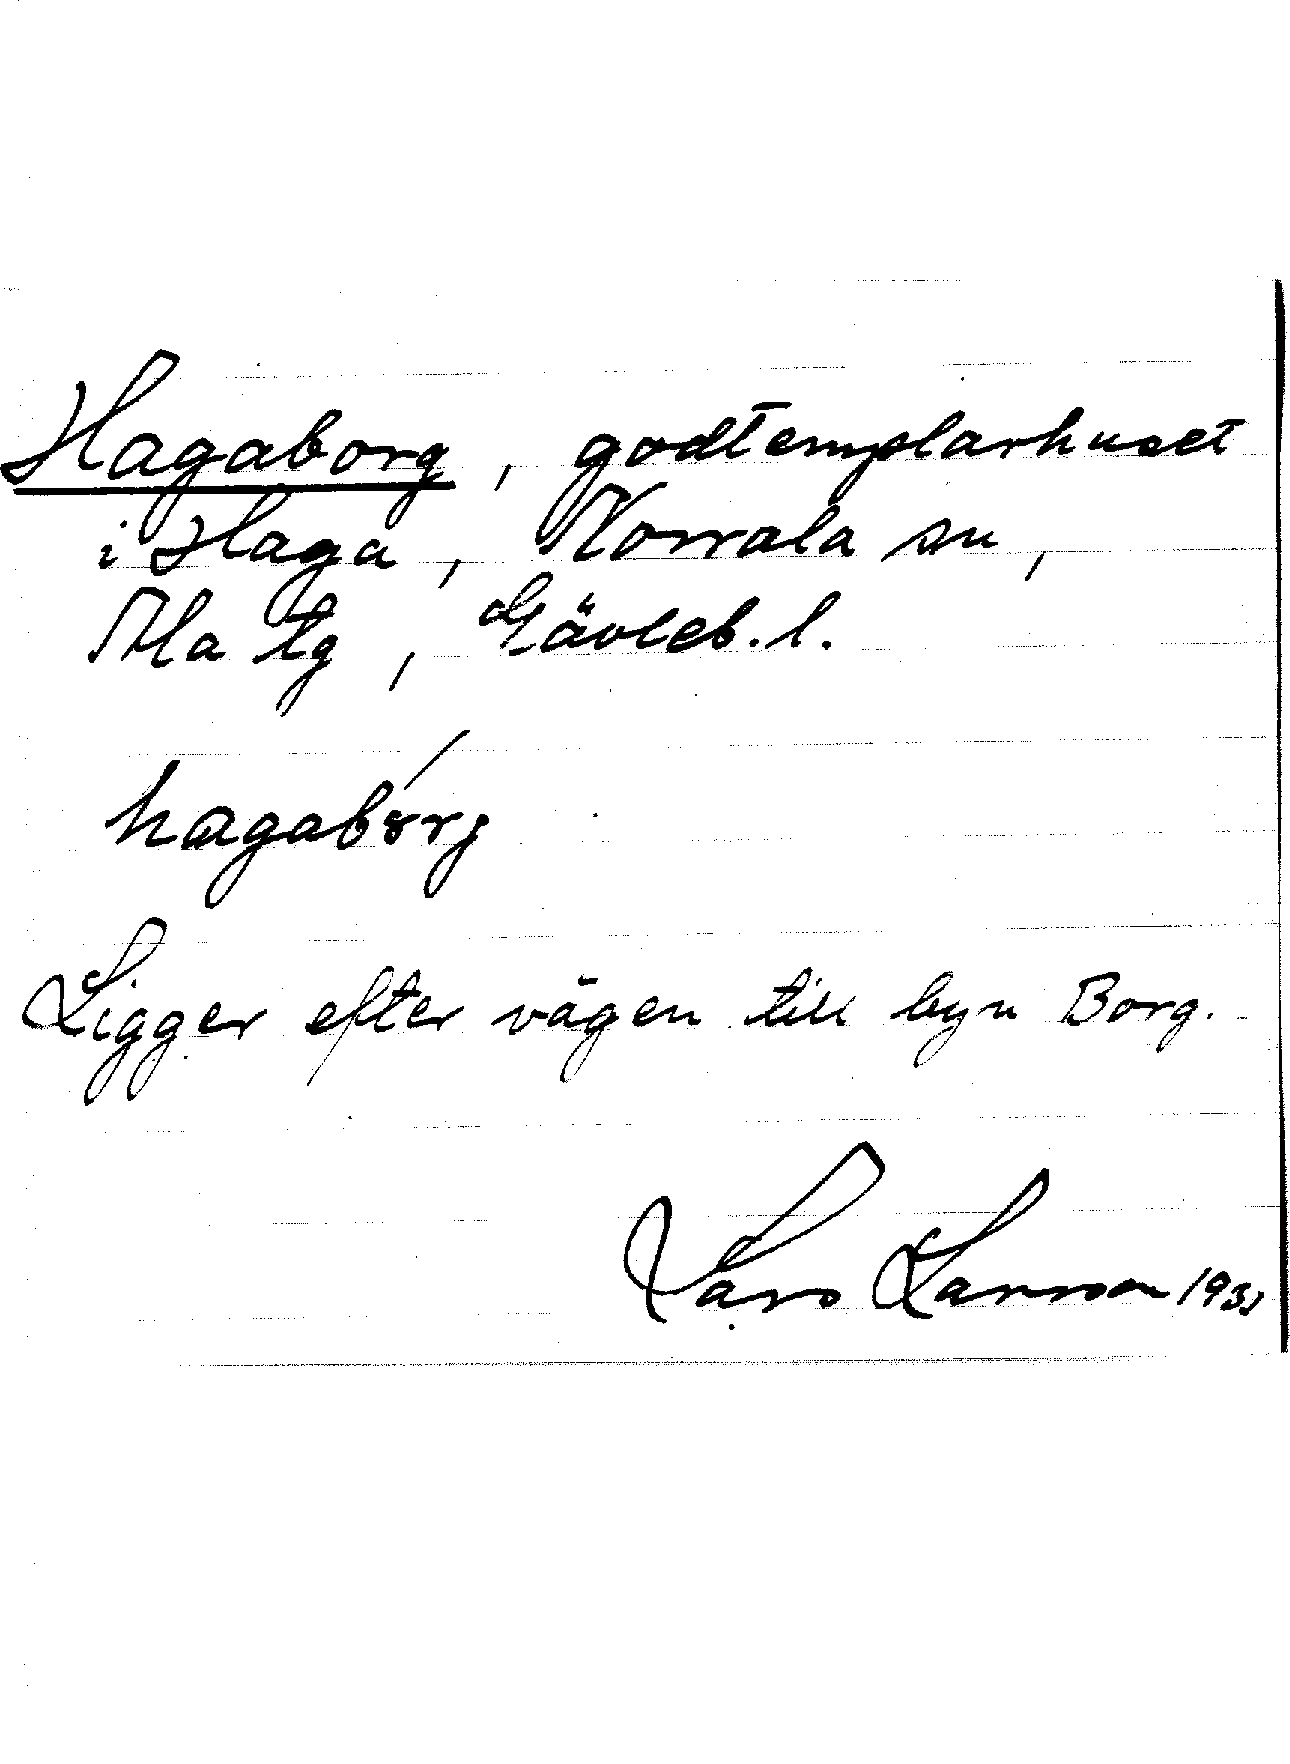 Hagaborg, godtemplarhuset
i Haga, Norrala sn,
Ala tg, Gävleb. l.
hagabórg
Ligger efter vägen till byn Borg.
Lars Larsson